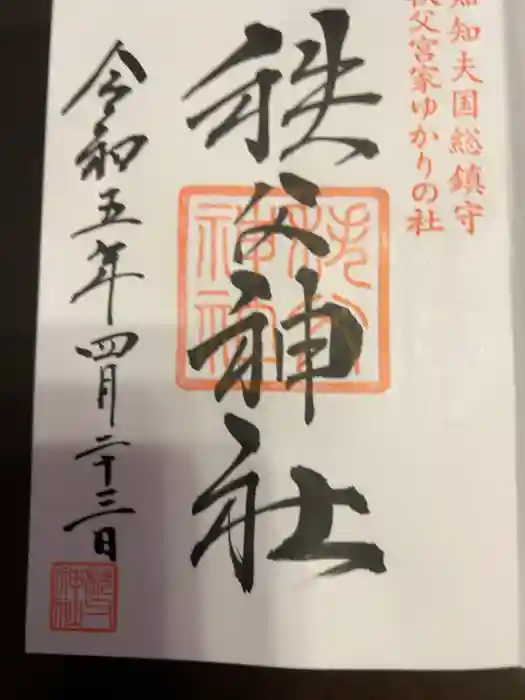 知知夫国総鎮守
秩父宮家ゆかりの社
秩父神社
令和五年四月二十三日
秩父神社